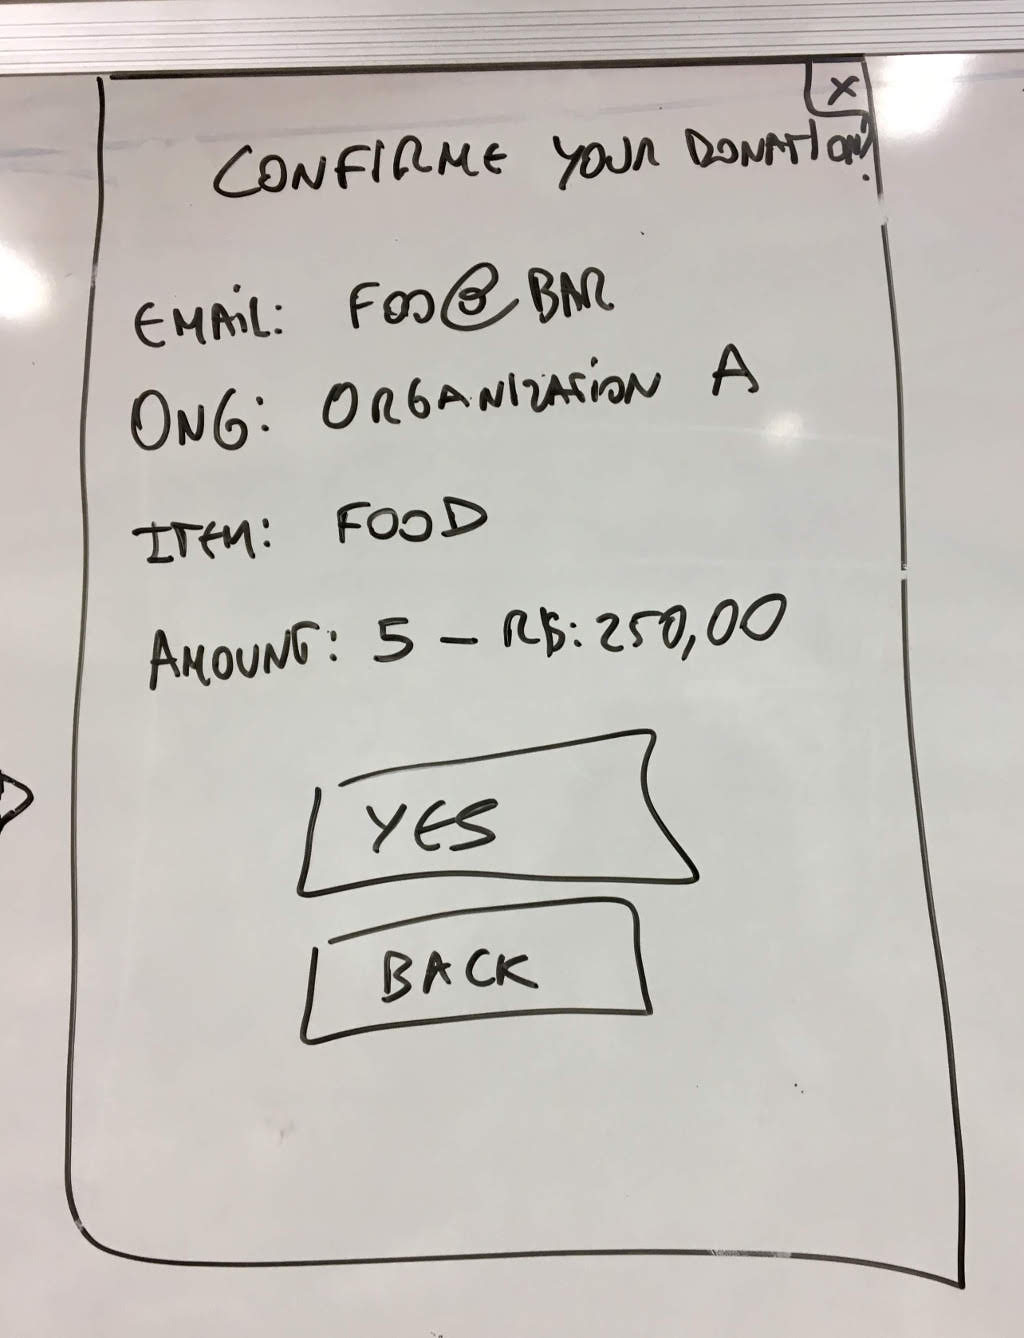 X
CONFIRME YOUR DONATION?
EMAIL: FOO@BAR
ONG: ORGANIZATION A
ITEM: FOOD
AMOUNT: 5 – R$: 250,00
YES
BACK